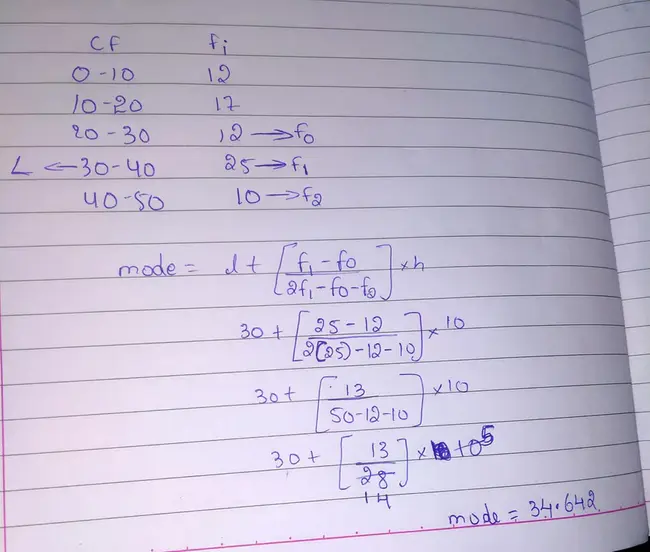 CF fi
0-10 12
10-20 17
20-30 12 → f0
L ← 30-40 25 → f1
40-50 10 → f2
mode = l + [f1 - f0 / 2f1 - f0 - f2] × h
30 + [25 - 12 / 2(25) - 12 - 10] × 10
30 + [13 / 50 - 12 - 10] × 10
30 + [13 / 28] × 10 5
14
mode = 34.642